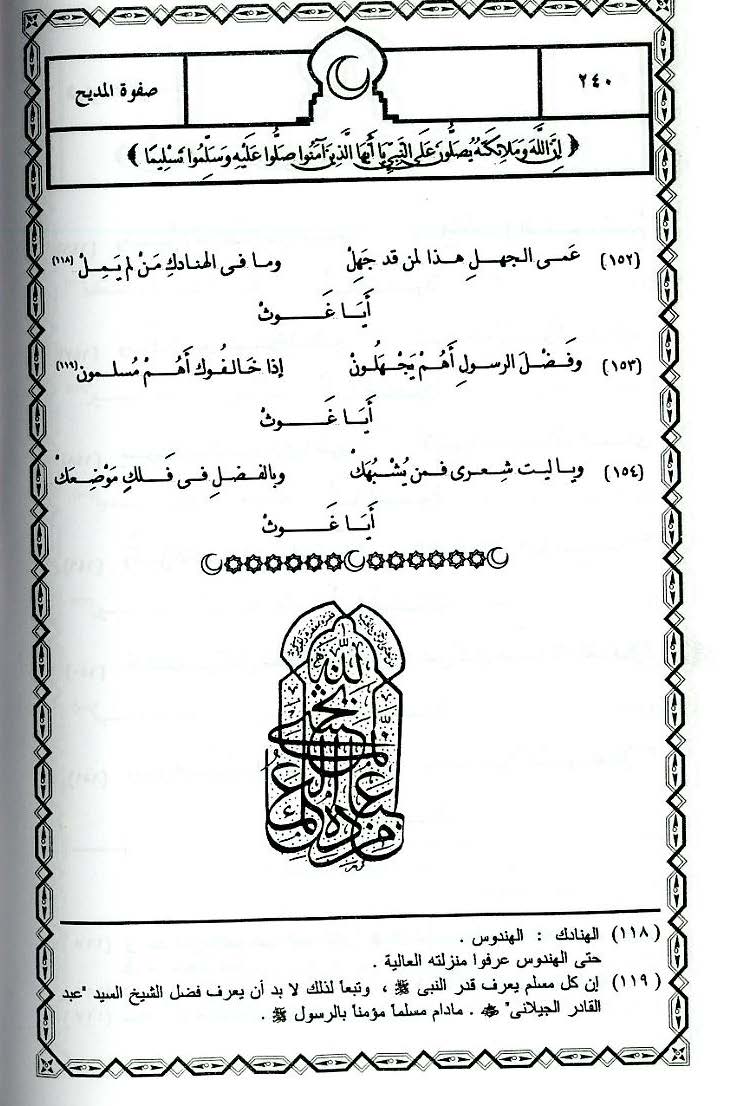 ٢٤٠
صفوة المديح
﴿ إِنَّ اللَّهَ وَمَلَائِكَتَهُ يُصَلُّونَ عَلَى النَّبِيِّ يَا أَيُّهَا الَّذِينَ آمَنُوا صَلُّوا عَلَيْهِ وَسَلِّمُوا تَسْلِيمًا ﴾
(١٥٢) عَمى الجهلِ هذا لمن قد جَهِلْ وما فى الهنادكِ مَنْ لم يَمِلْ (١١٨)
أَيَا غَوثْ
(١٥٣) وفَضْلَ الرسولِ أَهُمْ يَجْهَلُونْ إذا خَالفُوك أَهُمْ مُسلمون (١١٩)
أَيَا غَوثْ
(١٥٤) ويا ليت شِعرى فمن يُشْبُهكْ وبالفضلِ فى فَلكٍ مَوْضِعَكْ
أَيَا غَوثْ
الله
(١١٨) الهنادك : الهندوس .
حتى الهندوس عرفوا منزلته العالية .
(١١٩) إن كل مسلم يعرف قدر النبى ﷺ ، وتبعاً لذلك لا بد أن يعرف فضل الشيخ السيد "عبد
القادر الجيلانى" . مادام مسلماً مؤمناً بالرسول ﷺ .